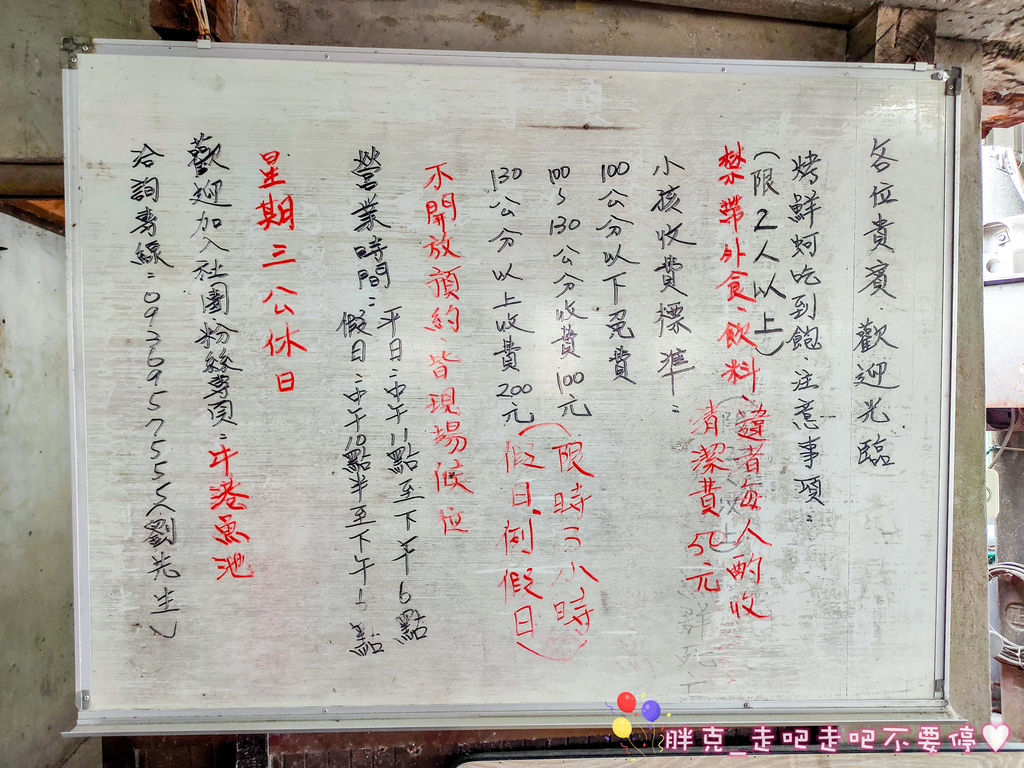 各位貴賓.歡迎光臨
烤鮮蚵吃到飽.注意事項:
(限2人以上)
禁帶外食、飲料、違者每人酌收
清潔費50元
小孩收費標準:
100公分以下免費
100~130公分收費100元
130公分以上收費200元
(限時二小時
假日.例假日)
不開放預約.皆現場候位
營業時間:平日:中午11點至下午6點
假日:中午10點半至下午6點
星期三公休日
歡迎加入社團粉絲專頁:牛港魚池
洽詢專線:0936957555(劉先生)
胖克_走吧走吧不要停